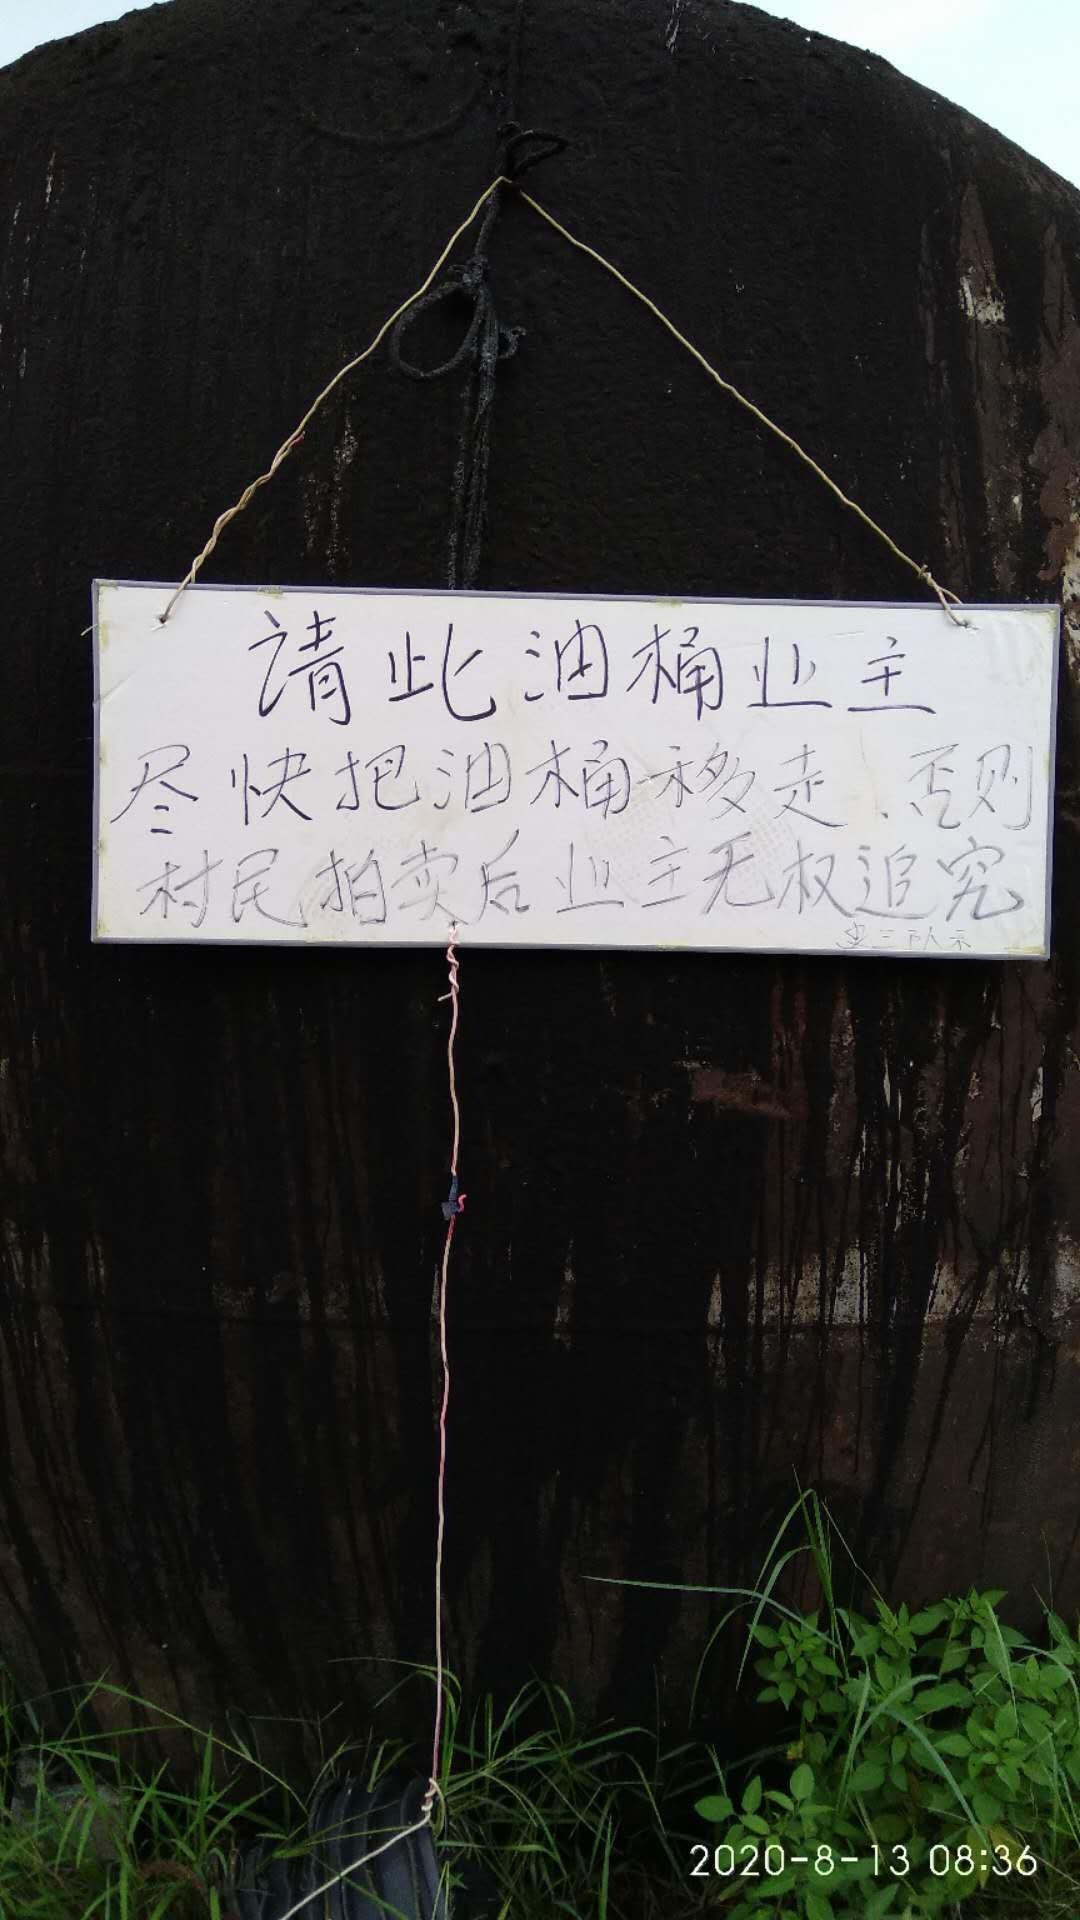 请此油桶业主
尽快把油桶移走、否则
村民拍卖后业主无权追究
三队示
2020-8-13 08:36